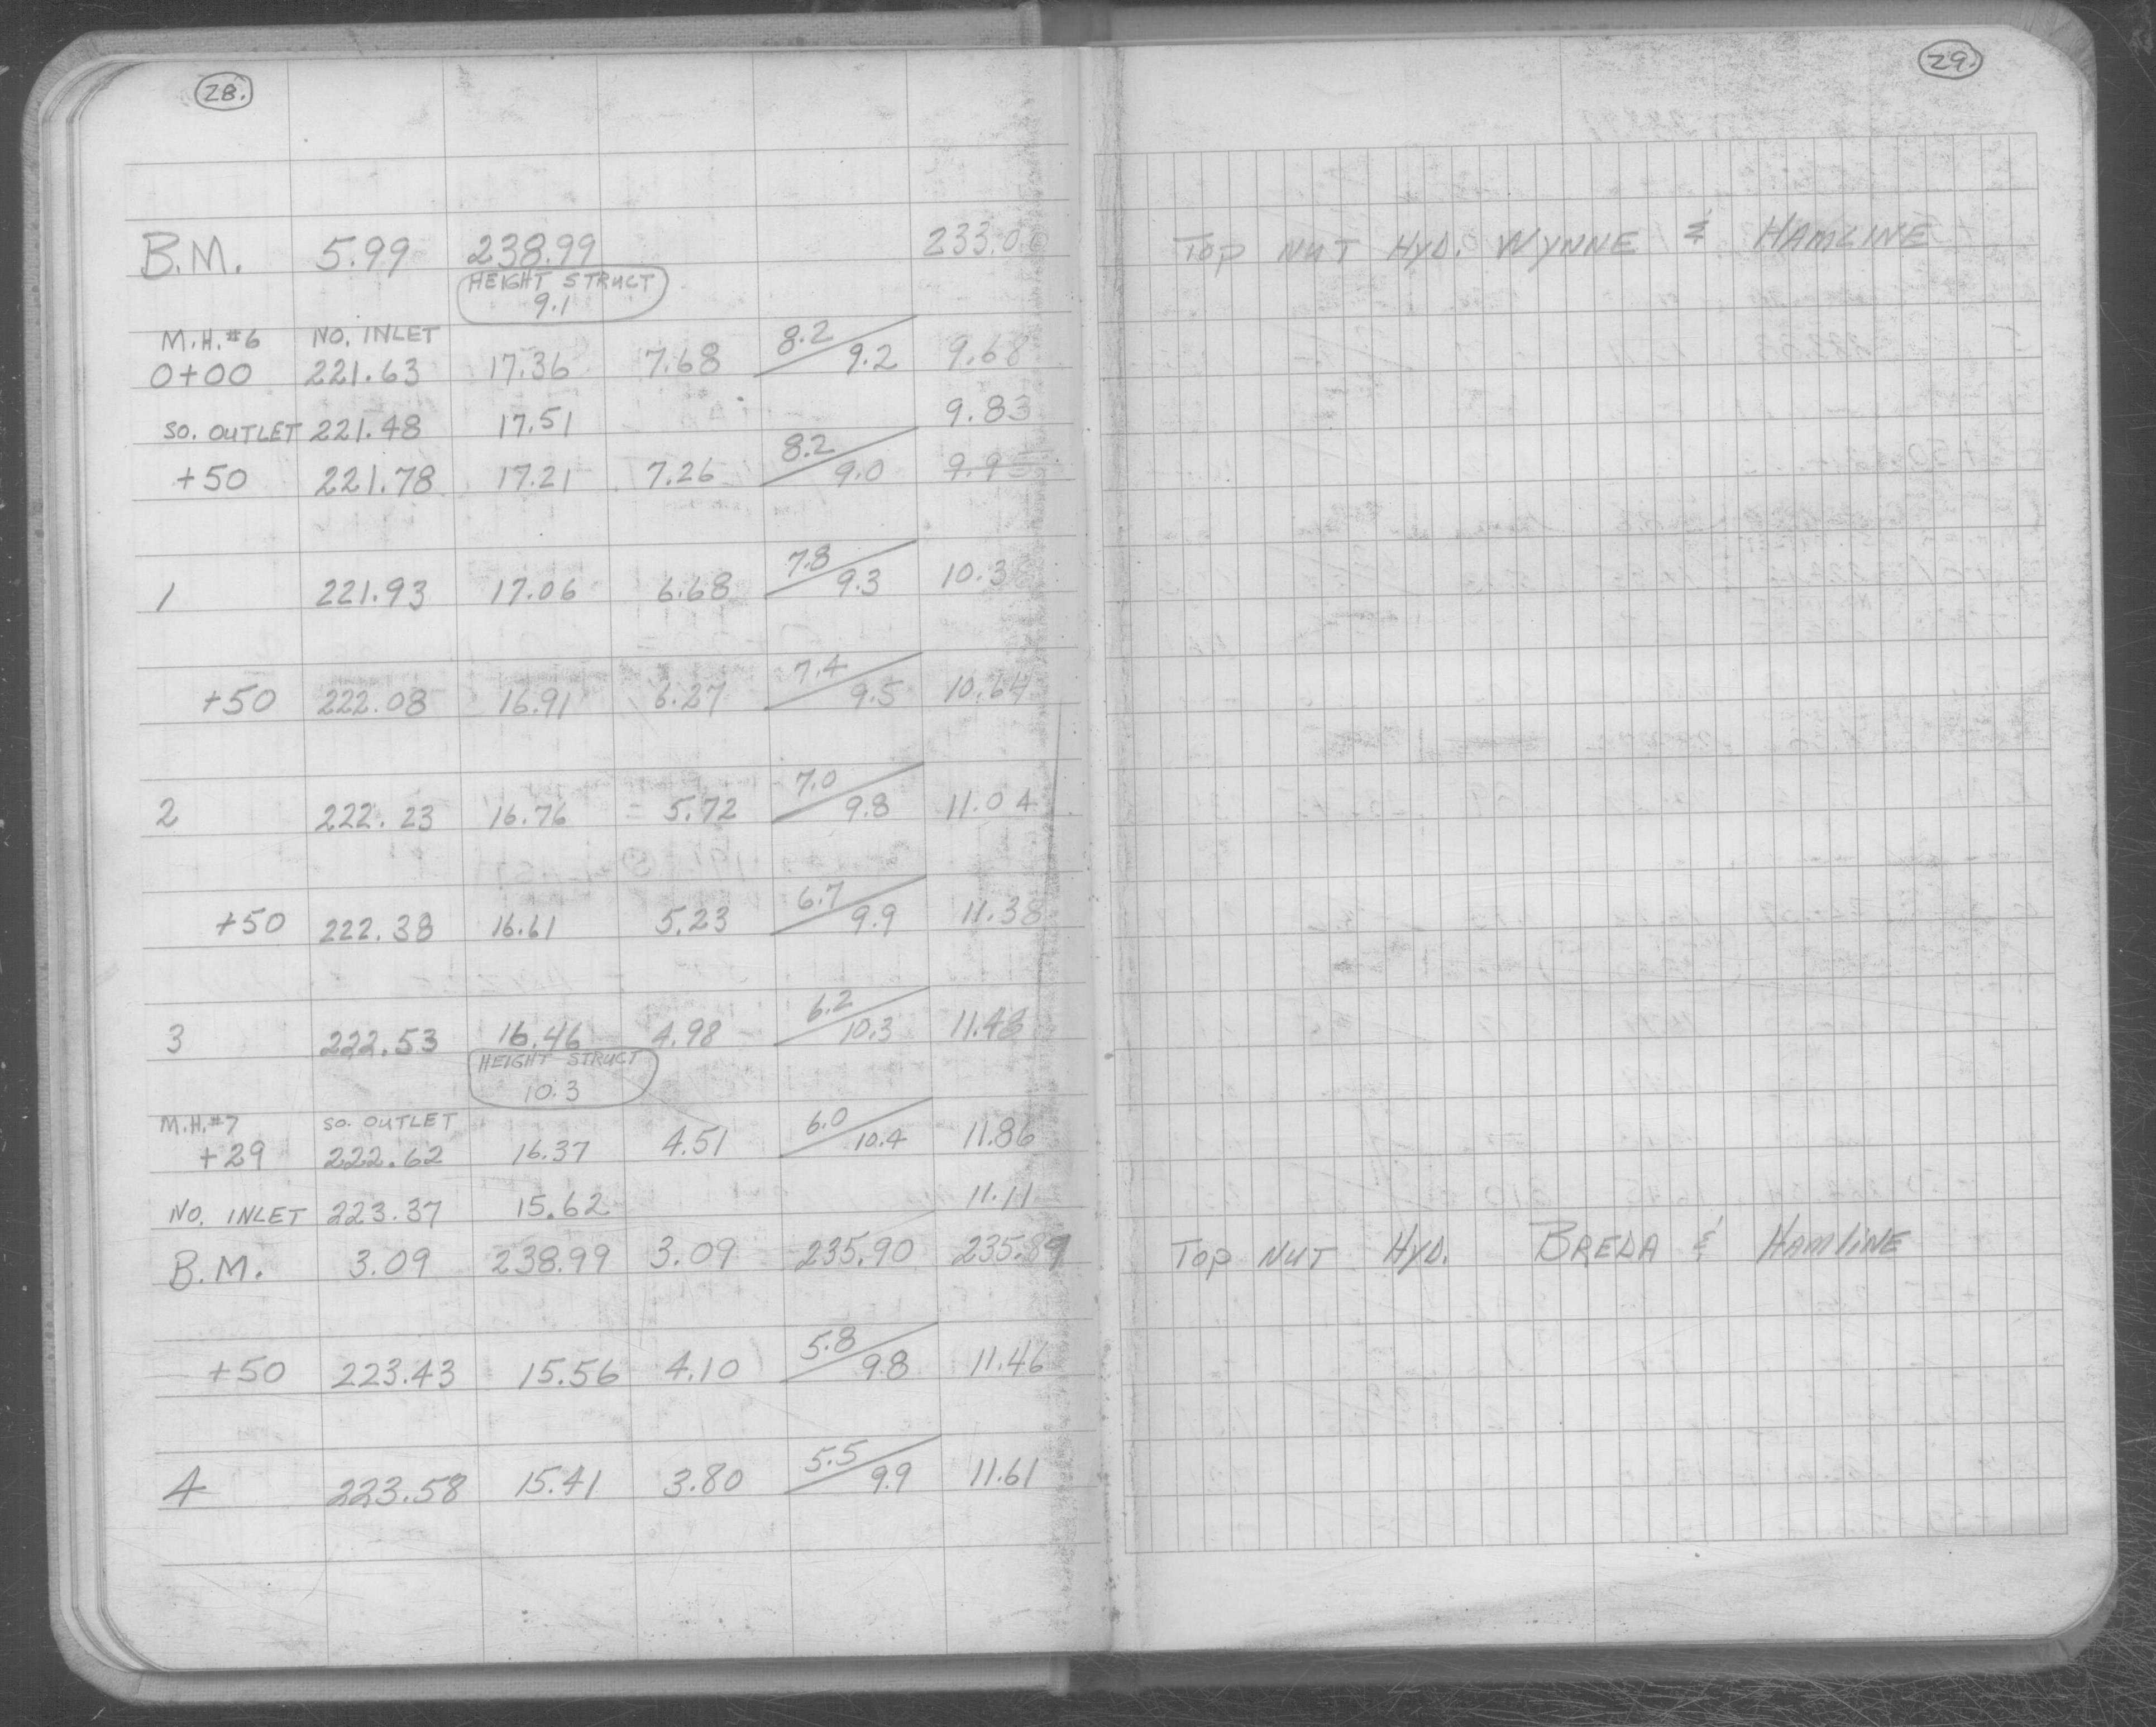 28.
B.M. 5.99 238.99 233.0
HEIGHT STRUCT
9.1
M.H.#6 NO. INLET
0+00 221.63 17.36 7.68 8.2/9.2 9.68
SO. OUTLET 221.48 17.51 9.83
+50 221.78 17.21 7.26 8.2/9.0 9.95
1 221.93 17.06 6.68 7.8/9.3 10.38
+50 222.08 16.91 6.27 7.4/9.5 10.64
2 222.23 16.76 = 5.72 7.0/9.8 11.04
+50 222.38 16.61 5.23 6.7/9.9 11.38
3 222.53 16.46 4.98 6.2/10.3 11.48
HEIGHT STRUCT
10.3
M.H.#7 SO. OUTLET
+29 222.62 16.37 4.51 6.0/10.4 11.86
NO. INLET 223.37 15.62 11.11
B.M. 3.09 238.99 3.09 235.90 235.89
+50 223.43 15.56 4.10 5.8/9.8 11.46
4 223.58 15.41 3.80 5.5/9.9 11.61
29.
TOP NUT HYD. WYNNE & HAMLINE
TOP NUT HYD. BREDA & HAMLINE